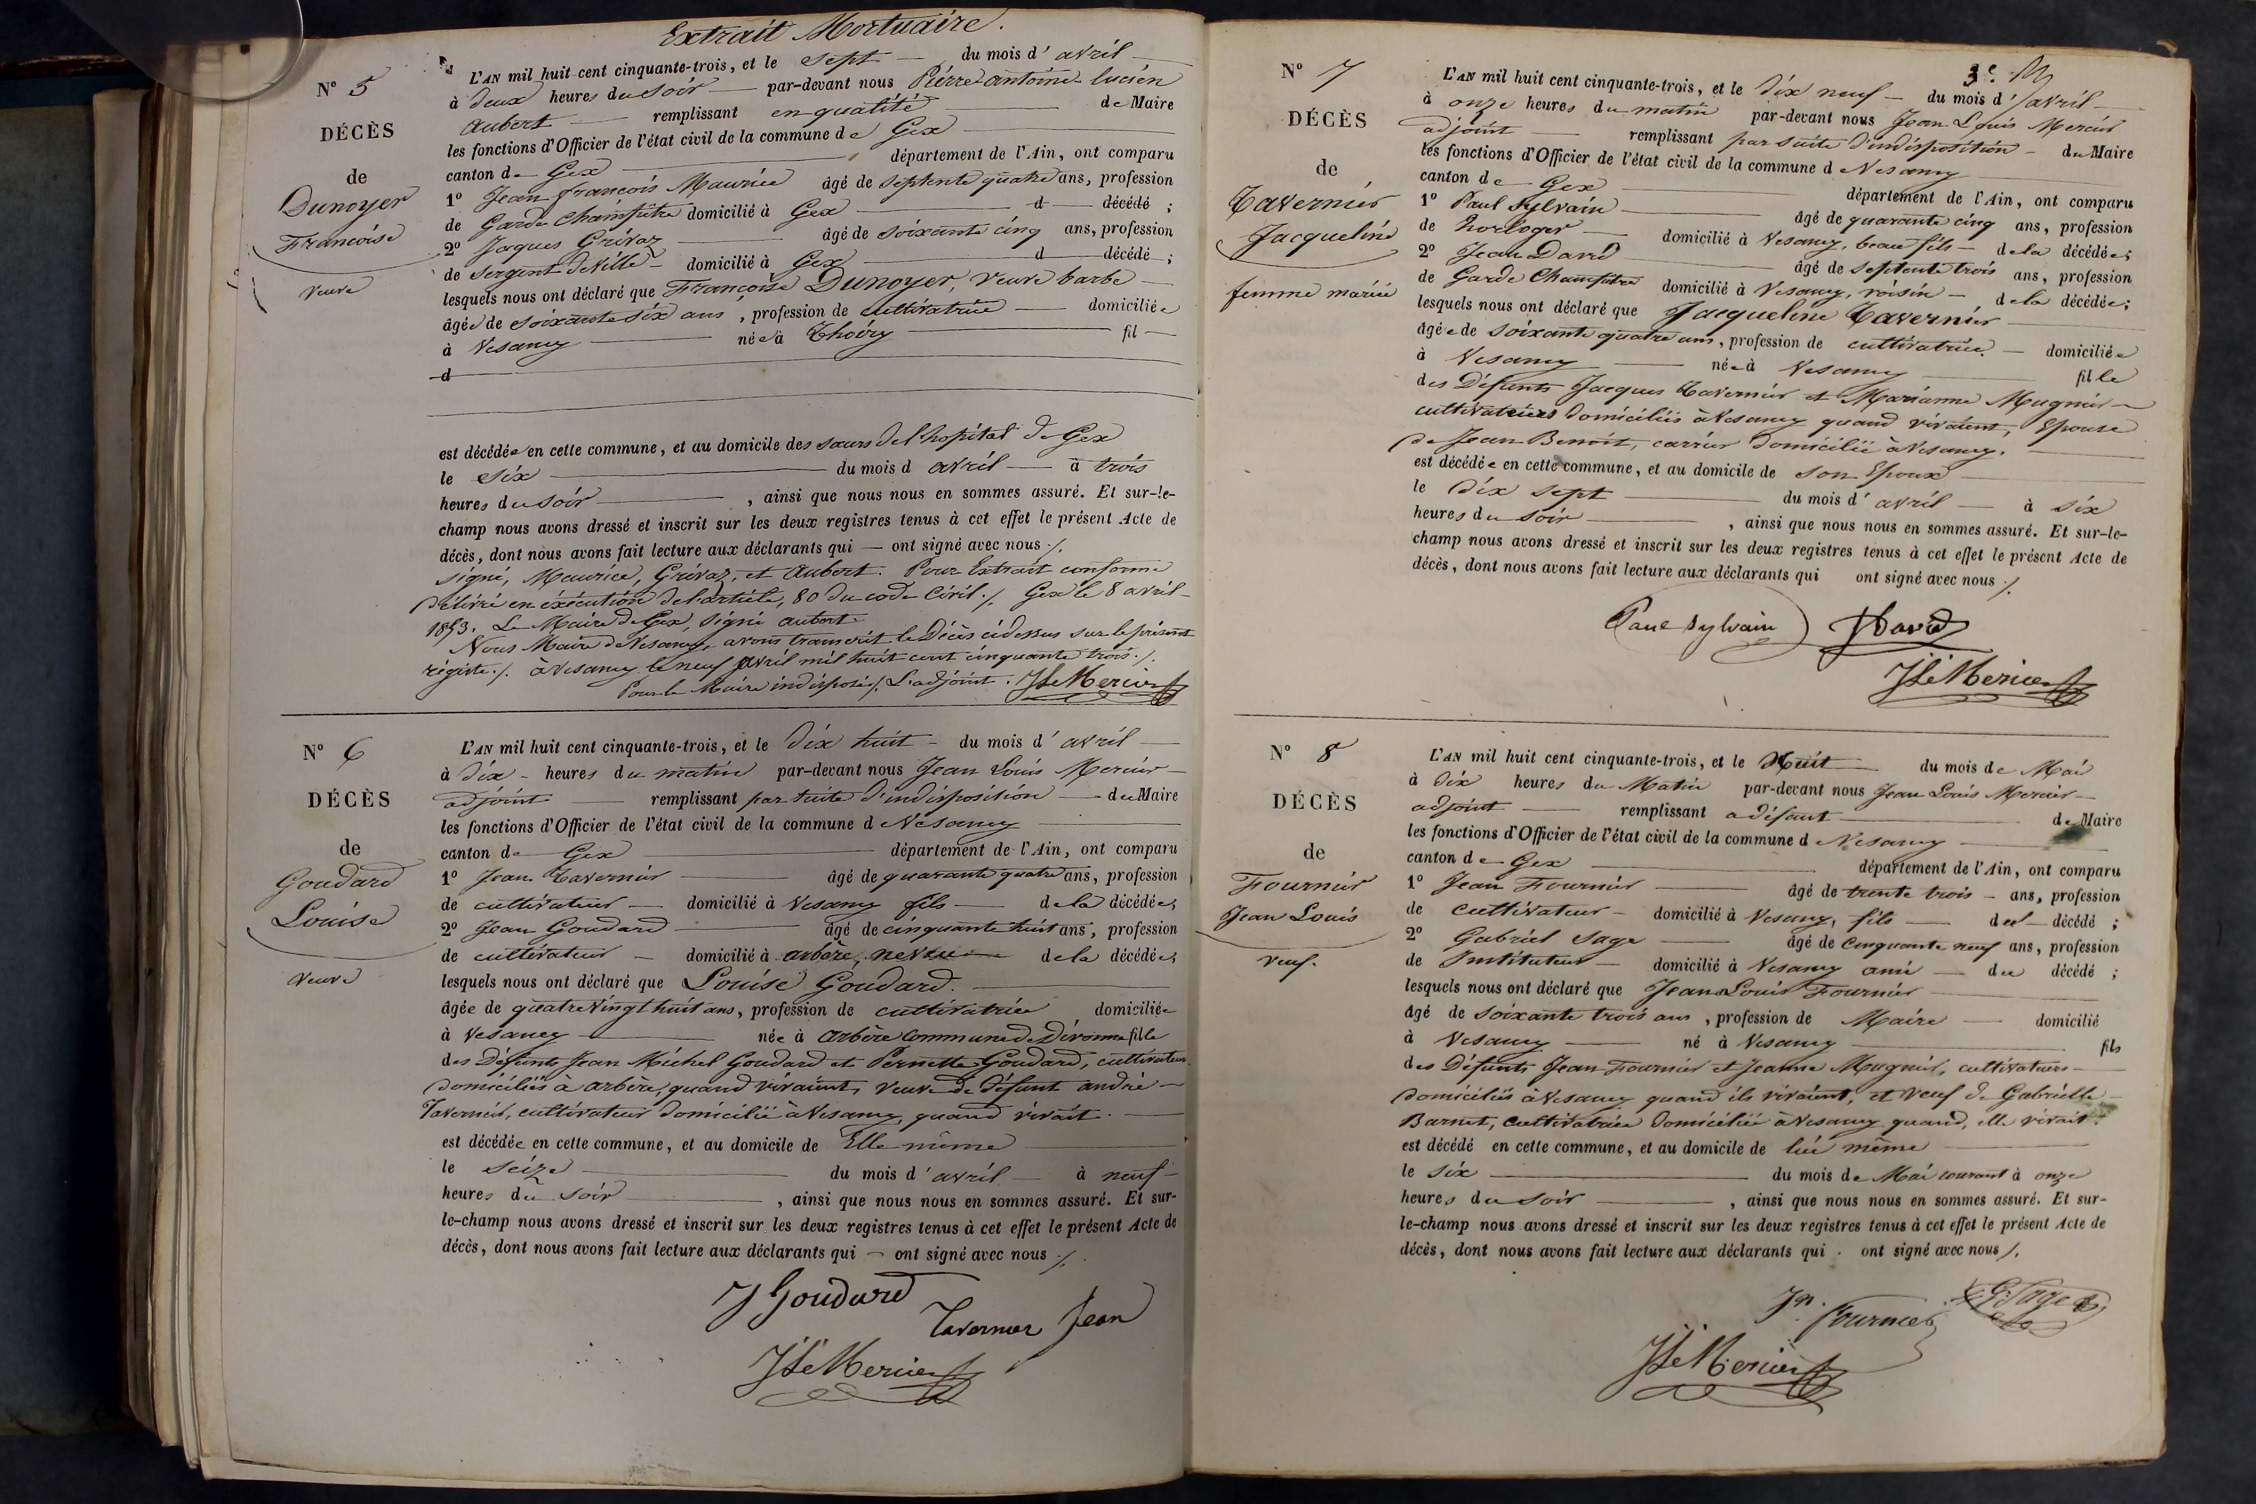 Extrait Mortuaire.
N° 5
DÉCÈS
de
Dunoyer
Francoise
veuve
L'AN mil huit cent cinquante-trois, et le sept du mois d'avril
à deux heures du soir par-devant nous Pierre antoine lucien
Aubert remplissant en qualité de Maire
les fonctions d'Officier de l'état civil de la commune de Gex
canton de Gex département de l'Ain, ont comparu
1° Jean francois Maurice âgé de septente quatre ans, profession
de Garde Champêtre domicilié à Gex d décédé ;
2° Jaques Grévaz âgé de soixante cinq ans, profession
de sergent de ville domicilié à Gex d décédé ;
lesquels nous ont déclaré que Françoise Dunoyer, veuve barbe
âgée de soixante six ans, profession de cultivatrice domiciliée
à Vesancy née à Thoiry fil
d
est décédée en cette commune, et au domicile des sœurs de l'hopital de Gex
le six du mois d avril à trois
heures du soir, ainsi que nous nous en sommes assuré. Et sur-le-
champ nous avons dressé et inscrit sur les deux registres tenus à cet effet le présent Acte de
décès, dont nous avons fait lecture aux déclarants qui — ont signé avec nous ./.
signé, Maurice, Grévaz, et Aubert. Pour Extrait conforme
Délivré en éxécution de l'article, 80 du code Civil ./. Gex le 8 avril
1853. Le Maire de Gex, signé aubert
Nous Maire de Vesancy, avons transcrit le Décès ci dessus sur le présent
régistre ./. à Vesancy le neuf avril mil huit cent cinquante trois ./.
Pour le Maire indisposé ./. L'adjoint. JLs Mercier
N° 6
DÉCÈS
de
Goudard
Louise
veuve
L'AN mil huit cent cinquante-trois, et le dix huit du mois d'avril
à dix heures du matin par-devant nous Jean Louis Mercier
adjoint remplissant par suite d'indisposition du Maire
les fonctions d'Officier de l'état civil de la commune d Vesancy
canton de Gex département de l'Ain, ont comparu
1° Jean Tavernier âgé de quarante quatre ans, profession
de cultivateur domicilié à Vesancy fils de la décédée;
2° Jean Goudard âgé de cinquante huit ans, profession
de cultivateur domicilié à arbère, neveu de la décédée;
lesquels nous ont déclaré que Louise Goudard.
âgée de quatre vingt huit ans, profession de cultivatrice domiciliée
à Vesancy née à Arbère commune de Divonne fille
des Défunts Jean Michel Goudard et Pernette Goudard, cultivateurs
domiciliés à arbère, quand vivaient, veuve de défunt andré
Tavernier, cultivateur domicilié à Vesancy, quand vivait.
est décédée en cette commune, et au domicile de Elle même
le seize du mois d'avril à neuf
heures du soir, ainsi que nous nous en sommes assuré. Et sur-
le-champ nous avons dressé et inscrit sur les deux registres tenus à cet effet le présent Acte de
décès, dont nous avons fait lecture aux déclarants qui — ont signé avec nous ./.
J Goudard
Tavernier Jean
JLs Mercier
3e.
N° 7
DÉCÈS
de
Tavernier
Jacqueline
femme mariée
L'AN mil huit cent cinquante-trois, et le dix neuf du mois d'avril
à onze heures du matin par-devant nous Jean Louis Mercier
adjoint remplissant par suite d'indisposition du Maire
les fonctions d'Officier de l'état civil de la commune d Vesancy
canton de Gex département de l'Ain, ont comparu
1° Paul Sylvain âgé de quarante cinq ans, profession
de horloger domicilié à Vesancy, beau fils de la décédée;
2° Jean David âgé de septente trois ans, profession
de Garde Champêtre domicilié à Vesancy, voisin de la décédée;
lesquels nous ont déclaré que Jacqueline Tavernier
âgée de soixante quatre ans, profession de cultivatrice domiciliée
à Vesancy née à Vesancy fille
des Défunts Jacques Tavernier et Marianne Mugnier
cultivateurs domiciliés à Vesancy quand vivaient, Epouse
de Jean Benoit, carrier domicilié à Vesancy.
est décédée en cette commune, et au domicile de son Epoux
le dix sept du mois d'avril à six
heures du soir, ainsi que nous nous en sommes assuré. Et sur-le-
champ nous avons dressé et inscrit sur les deux registres tenus à cet effet le présent Acte de
décès, dont nous avons fait lecture aux déclarants qui ont signé avec nous ./.
Paul Sylvain JDavid
JLs Mercier
N° 8
DÉCÈS
de
Fournier
Jean Louis
veuf.
L'AN mil huit cent cinquante-trois, et le Huit du mois de Mai
à dix heures du Matin par-devant nous Jean Louis Mercier
adjoint remplissant a défaut de Maire
les fonctions d'Officier de l'état civil de la commune d Vesancy
canton de Gex département de l'Ain, ont comparu
1° Jean Fournier âgé de trente trois ans, profession
de cultivateur domicilié à Vesancy, fils du décédé ;
2° Gabriel Sage âgé de cinquante neuf ans, profession
de Instituteur domicilié à Vesancy ami du décédé ;
lesquels nous ont déclaré que Jean Louis Fournier
âgé de soixante trois ans, profession de Maire domicilié
à Vesancy né à Vesancy fils
des Défunts Jean Fournier et Jeanne Mugnier, cultivateurs
domiciliés à Vesancy quand ils vivaient, et veuf de Gabrielle
Barnet, cultivatrice domiciliée à Vesancy quand, elle vivait.
est décédé en cette commune, et au domicile de lui même
le six du mois de Mai courant à onze
heures du soir, ainsi que nous nous en sommes assuré. Et sur-
le-champ nous avons dressé et inscrit sur les deux registres tenus à cet effet le présent Acte de
décès, dont nous avons fait lecture aux déclarants qui . ont signé avec nous ./.
Jn. Fournier G. Sage
JLs Mercier